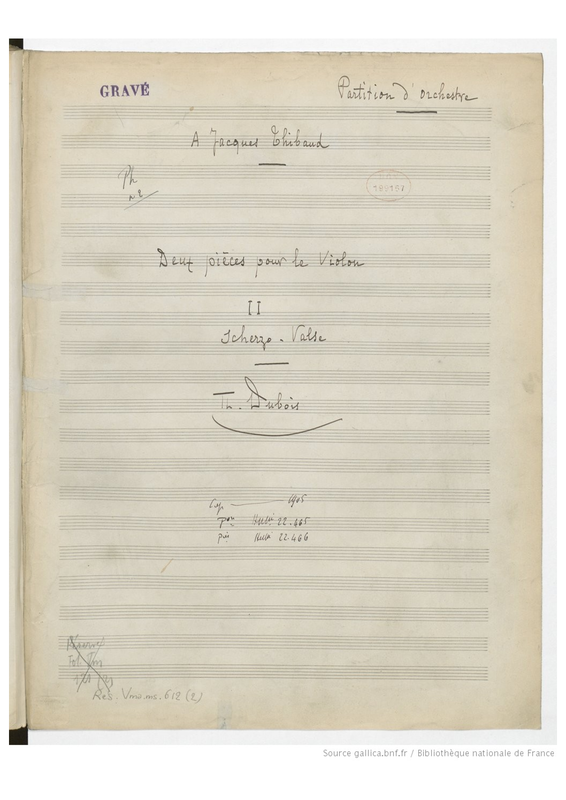 GRAVÉ
Partition d'Orchestre
A Jacques Thibaud
Ph
n°
Deux pièces pour le Violon
II
Scherzo - Valse
Th. Dubois
1905
22.465
22.466
Rés. Vma. ms. 612 (2)
Source gallica.bnf.fr / Bibliothèque nationale de France